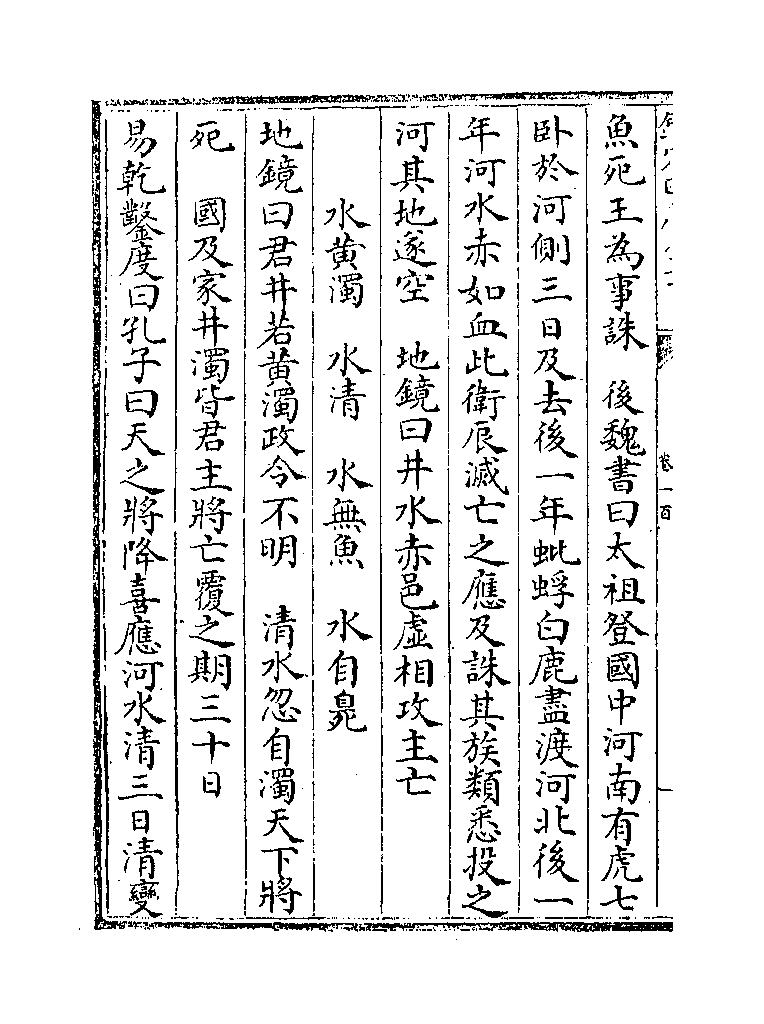 魚死王為事誅　後魏書曰太祖登國中河南有虎七
卧於河側三日及去後一年蚍蜉白鹿盡渡河北後一
年河水赤如血此衛辰滅亡之應及誅其族類悉投之
河其地遂空　地鏡曰井水赤邑虛相攻主亡
水黄濁　水清　水無魚　水自臰
地鏡曰君井若黄濁政令不明　清水忽自濁天下將
死　國及家井濁皆君主將亡覆之期三十日
易乾鑿度曰孔子曰天之將降喜應河水清三日清變
卷一百